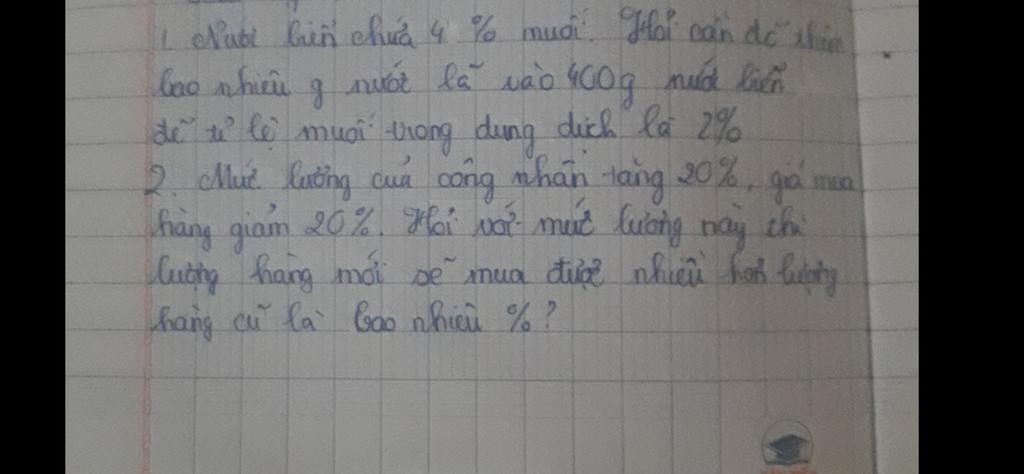 1. Nước biển chứa 4 % muối. Hỏi cần đổ thêm
bao nhiêu g nước lã vào 400g nước biển
để tỉ lệ muối trong dung dịch là 2%
2. Mức lương của công nhân tăng 20%, giá mua
hàng giảm 20%. Hỏi với mức lương này thì
lượng hàng mới sẽ mua được nhiều hơn lượng
hàng cũ là bao nhiêu %?